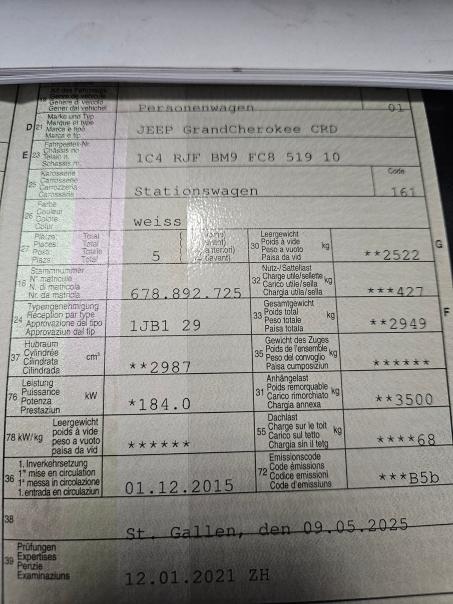 Art des Fahrzeugs
Genre de véhicule
Genere di veicolo
Gener dal vehichel
Personenwagen
01
D 21 Marke und Typ
Marque et type
Marca e tipo
Marca e tip
JEEP GrandCherokee CRD
E 23 Fahrgestell-Nr.
Châssis no
Telaio n.
Schassis nr.
1C4 RJF BM9 FC8 519 10
25 Karosserie
Carrosserie
Carrozzeria
Carossaria
Stationswagen
Code
161
26 Farbe
Couleur
Colore
Colur
weiss
27 Plätze: Total
Places: Total
Posti: Totale
Plazs: Total
5
30 Leergewicht
Poids à vide
Peso a vuoto kg
Paisa da vid
**2522
G
18 Stammnummer
N° matricule
N. di matricola
Nr. da matricla
678.892.725
32 Nutz-/Sattellast
Charge utile/sellette
Carico utile/sella kg
Chargia utila/sella
***427
24 Typengenehmigung
Réception par type
Approvazione del tipo
Approvaziun dal tip
1JB1 29
33 Gesamtgewicht
Poids total
Peso totale kg
Paisa totala
**2949
F
37 Hubraum
Cylindrée
Cilindrata cm³
Cilindrada
**2987
35 Gewicht des Zuges
Poids de l'ensemble
Peso del convoglio kg
Paisa cumposiziun
******
76 Leistung
Puissance
Potenza kW
Prestaziun
*184.0
31 Anhängelast
Poids remorquable
Carico rimorchiato kg
Chargia annexa
**3500
78 kW/kg Leergewicht
poids à vide
peso a vuoto
paisa da vid
******
55 Dachlast
Charge sur le toit
Carico sul tetto kg
Chargia sin il tetg
****68
36 1. Inverkehrsetzung
1re mise en circulation
1a messa in circolazione
1. entrada en circulaziun
01.12.2015
72 Emissionscode
Code émissions
Codice emissioni
Code d'emissiuns
***B5b
38
St. Gallen, den 09.05.2025
39 Prüfungen
Expertises
Perizie
Examinaziuns
12.01.2021 ZH